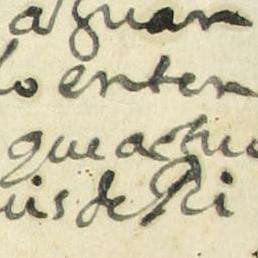 aguar
lo enten
que actuo
uis de Ri